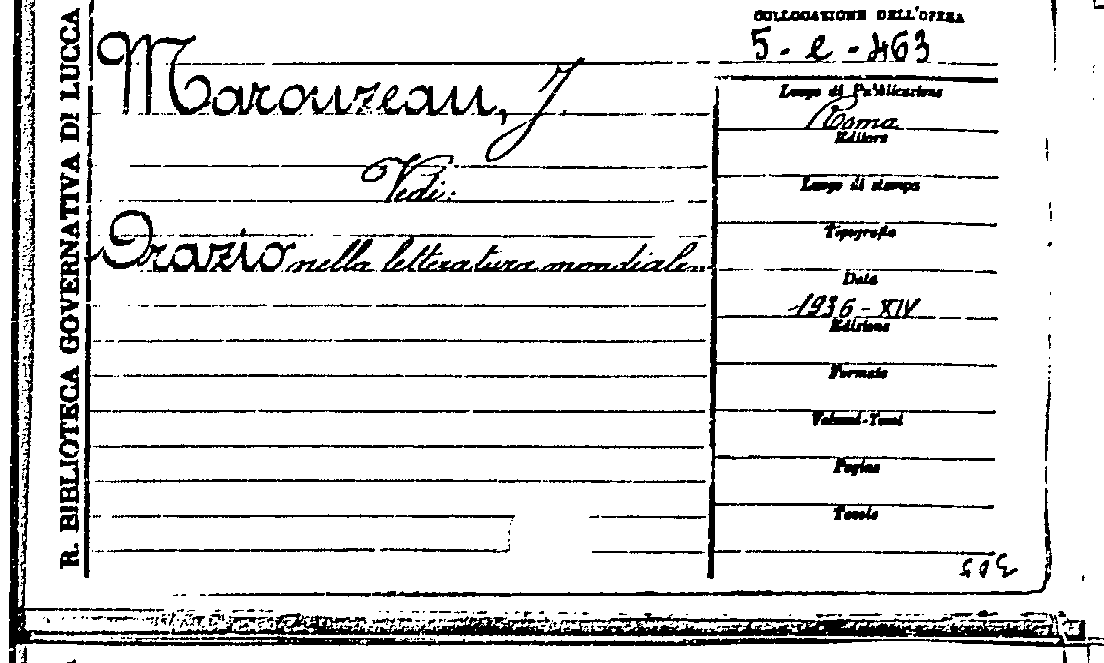 R. BIBLIOTECA GOVERNATIVA DI LUCCA
COLLOCAZIONE DELL'OPERA
5-e-463
Marouzeau, J.
Vedi:
Orazio nella letteratura mondiale..
Luogo di Pubblicazione
Roma
Editore
Luogo di stampa
Tipografia
Data
1936-XIV
Edizione
Formato
Volumi-Tomi
Pagine
Tavole